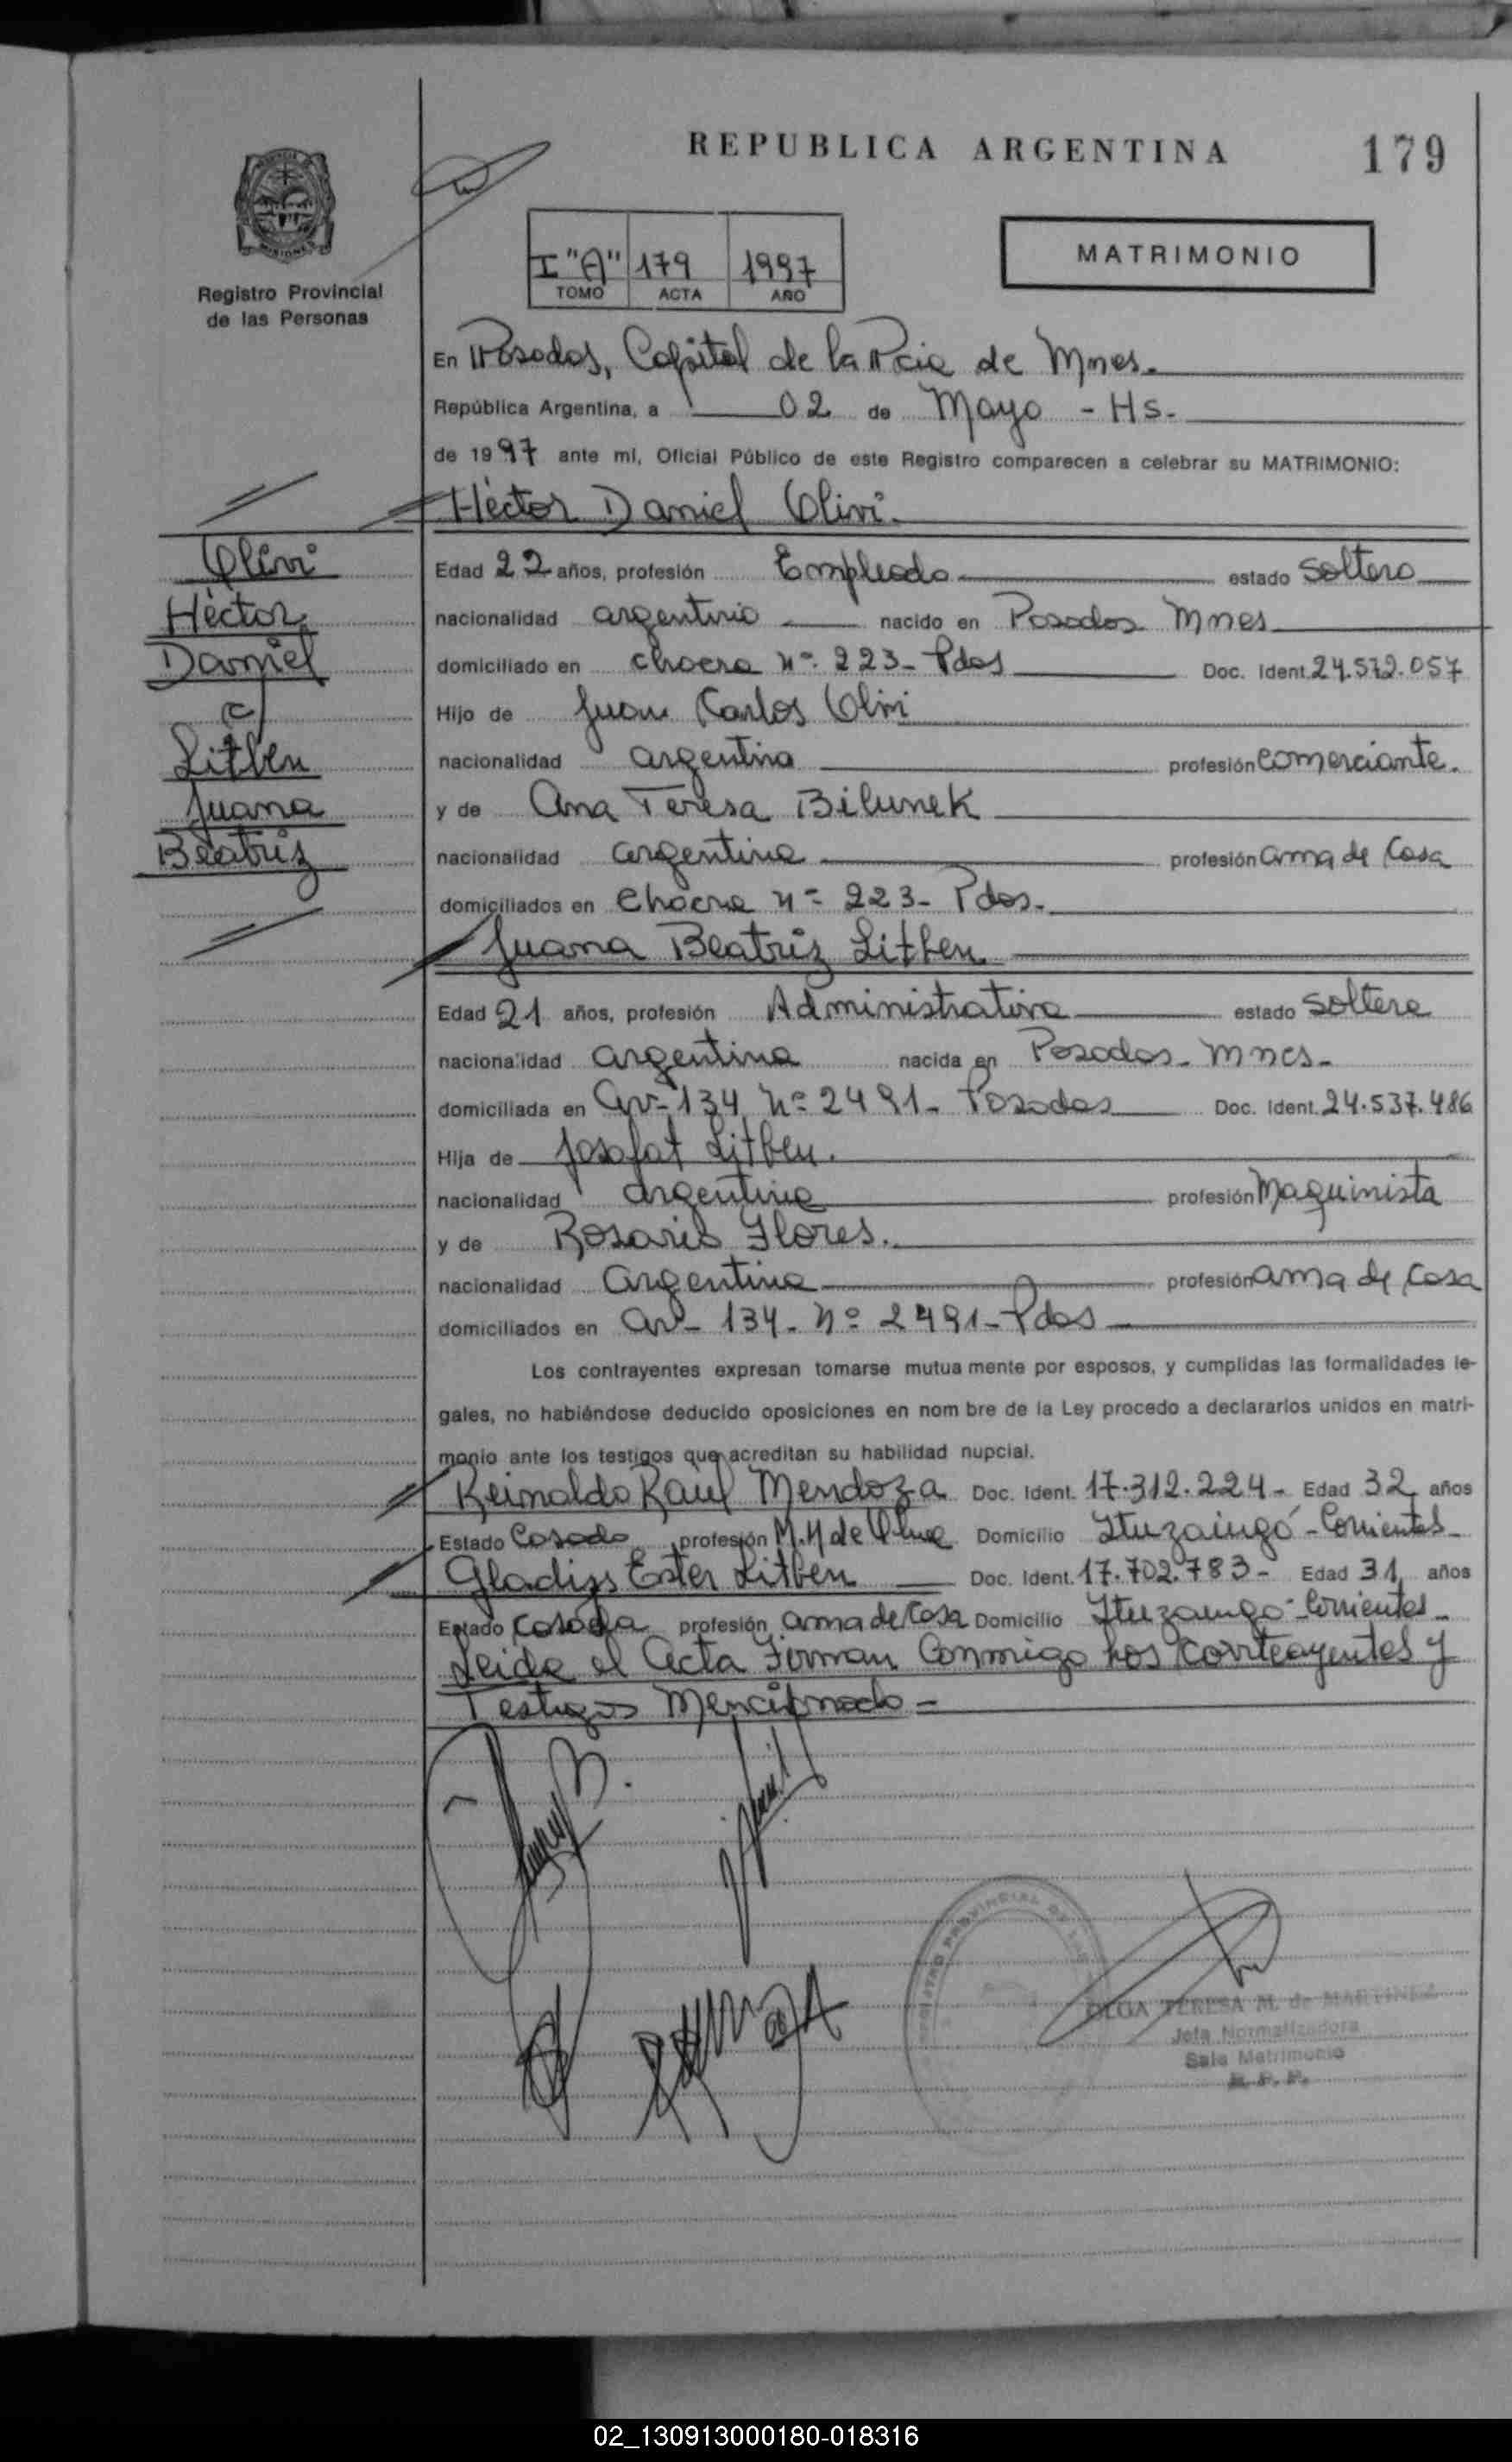 REPUBLICA ARGENTINA
179
MISIONES
Registro Provincial
de las Personas
I "A" 179 1997
TOMO ACTA AÑO
MATRIMONIO
En Posadas, Capital de la Pcia de Mnes.
República Argentina, a 02 de Mayo - Hs.
de 1997 ante mí, Oficial Público de este Registro comparecen a celebrar su MATRIMONIO:
Héctor Daniel Olivi.
Olivi
Héctor
Daniel
c/
Litben
Juana
Beatriz
Edad 22 años, profesión Empleado estado Soltero
nacionalidad argentino nacido en Posadas Mnes
domiciliado en chacra nº 223- Pdas Doc. Ident. 24.572.057
Hijo de Juan Carlos Olivi
nacionalidad argentina profesión comerciante.
y de Ana Teresa Bilunek
nacionalidad argentina profesión ama de Casa
domiciliados en Chacra nº 223- Pdas.
Juana Beatriz Litben
Edad 21 años, profesión Administrativa estado Soltera
nacionalidad argentina nacida en Posadas- Mnes-
domiciliada en Av- 134 Nº 2491- Posadas Doc. Ident. 24.537.486
Hija de Josafat Litben.
nacionalidad argentina profesión Maquinista
y de Rosario Flores.
nacionalidad argentina profesión ama de Casa
domiciliados en av- 134- Nº 2491- Pdas
Los contrayentes expresan tomarse mutua mente por esposos, y cumplidas las formalidades le-
gales, no habiéndose deducido oposiciones en nom bre de la Ley procedo a declararlos unidos en matri-
monio ante los testigos que acreditan su habilidad nupcial.
Reinaldo Raul Mendoza Doc. Ident. 17.312.224- Edad 32 años
Estado Casado profesión M.M de Domicilio Ituzaingó-Corrientes-
Gladys Ester Litben Doc. Ident. 17.702.783- Edad 31 años
Estado Casada profesión ama de Casa Domicilio Ituzaingo-Corrientes-
Leida el Acta Firman Conmigo los contrayentes y
Testigos Mencionado -
OLGA TERESA M. de MARTINEZ
Jefa Normalizadora
Sala Matrimonio
R. P. P.
02_130913000180-018316